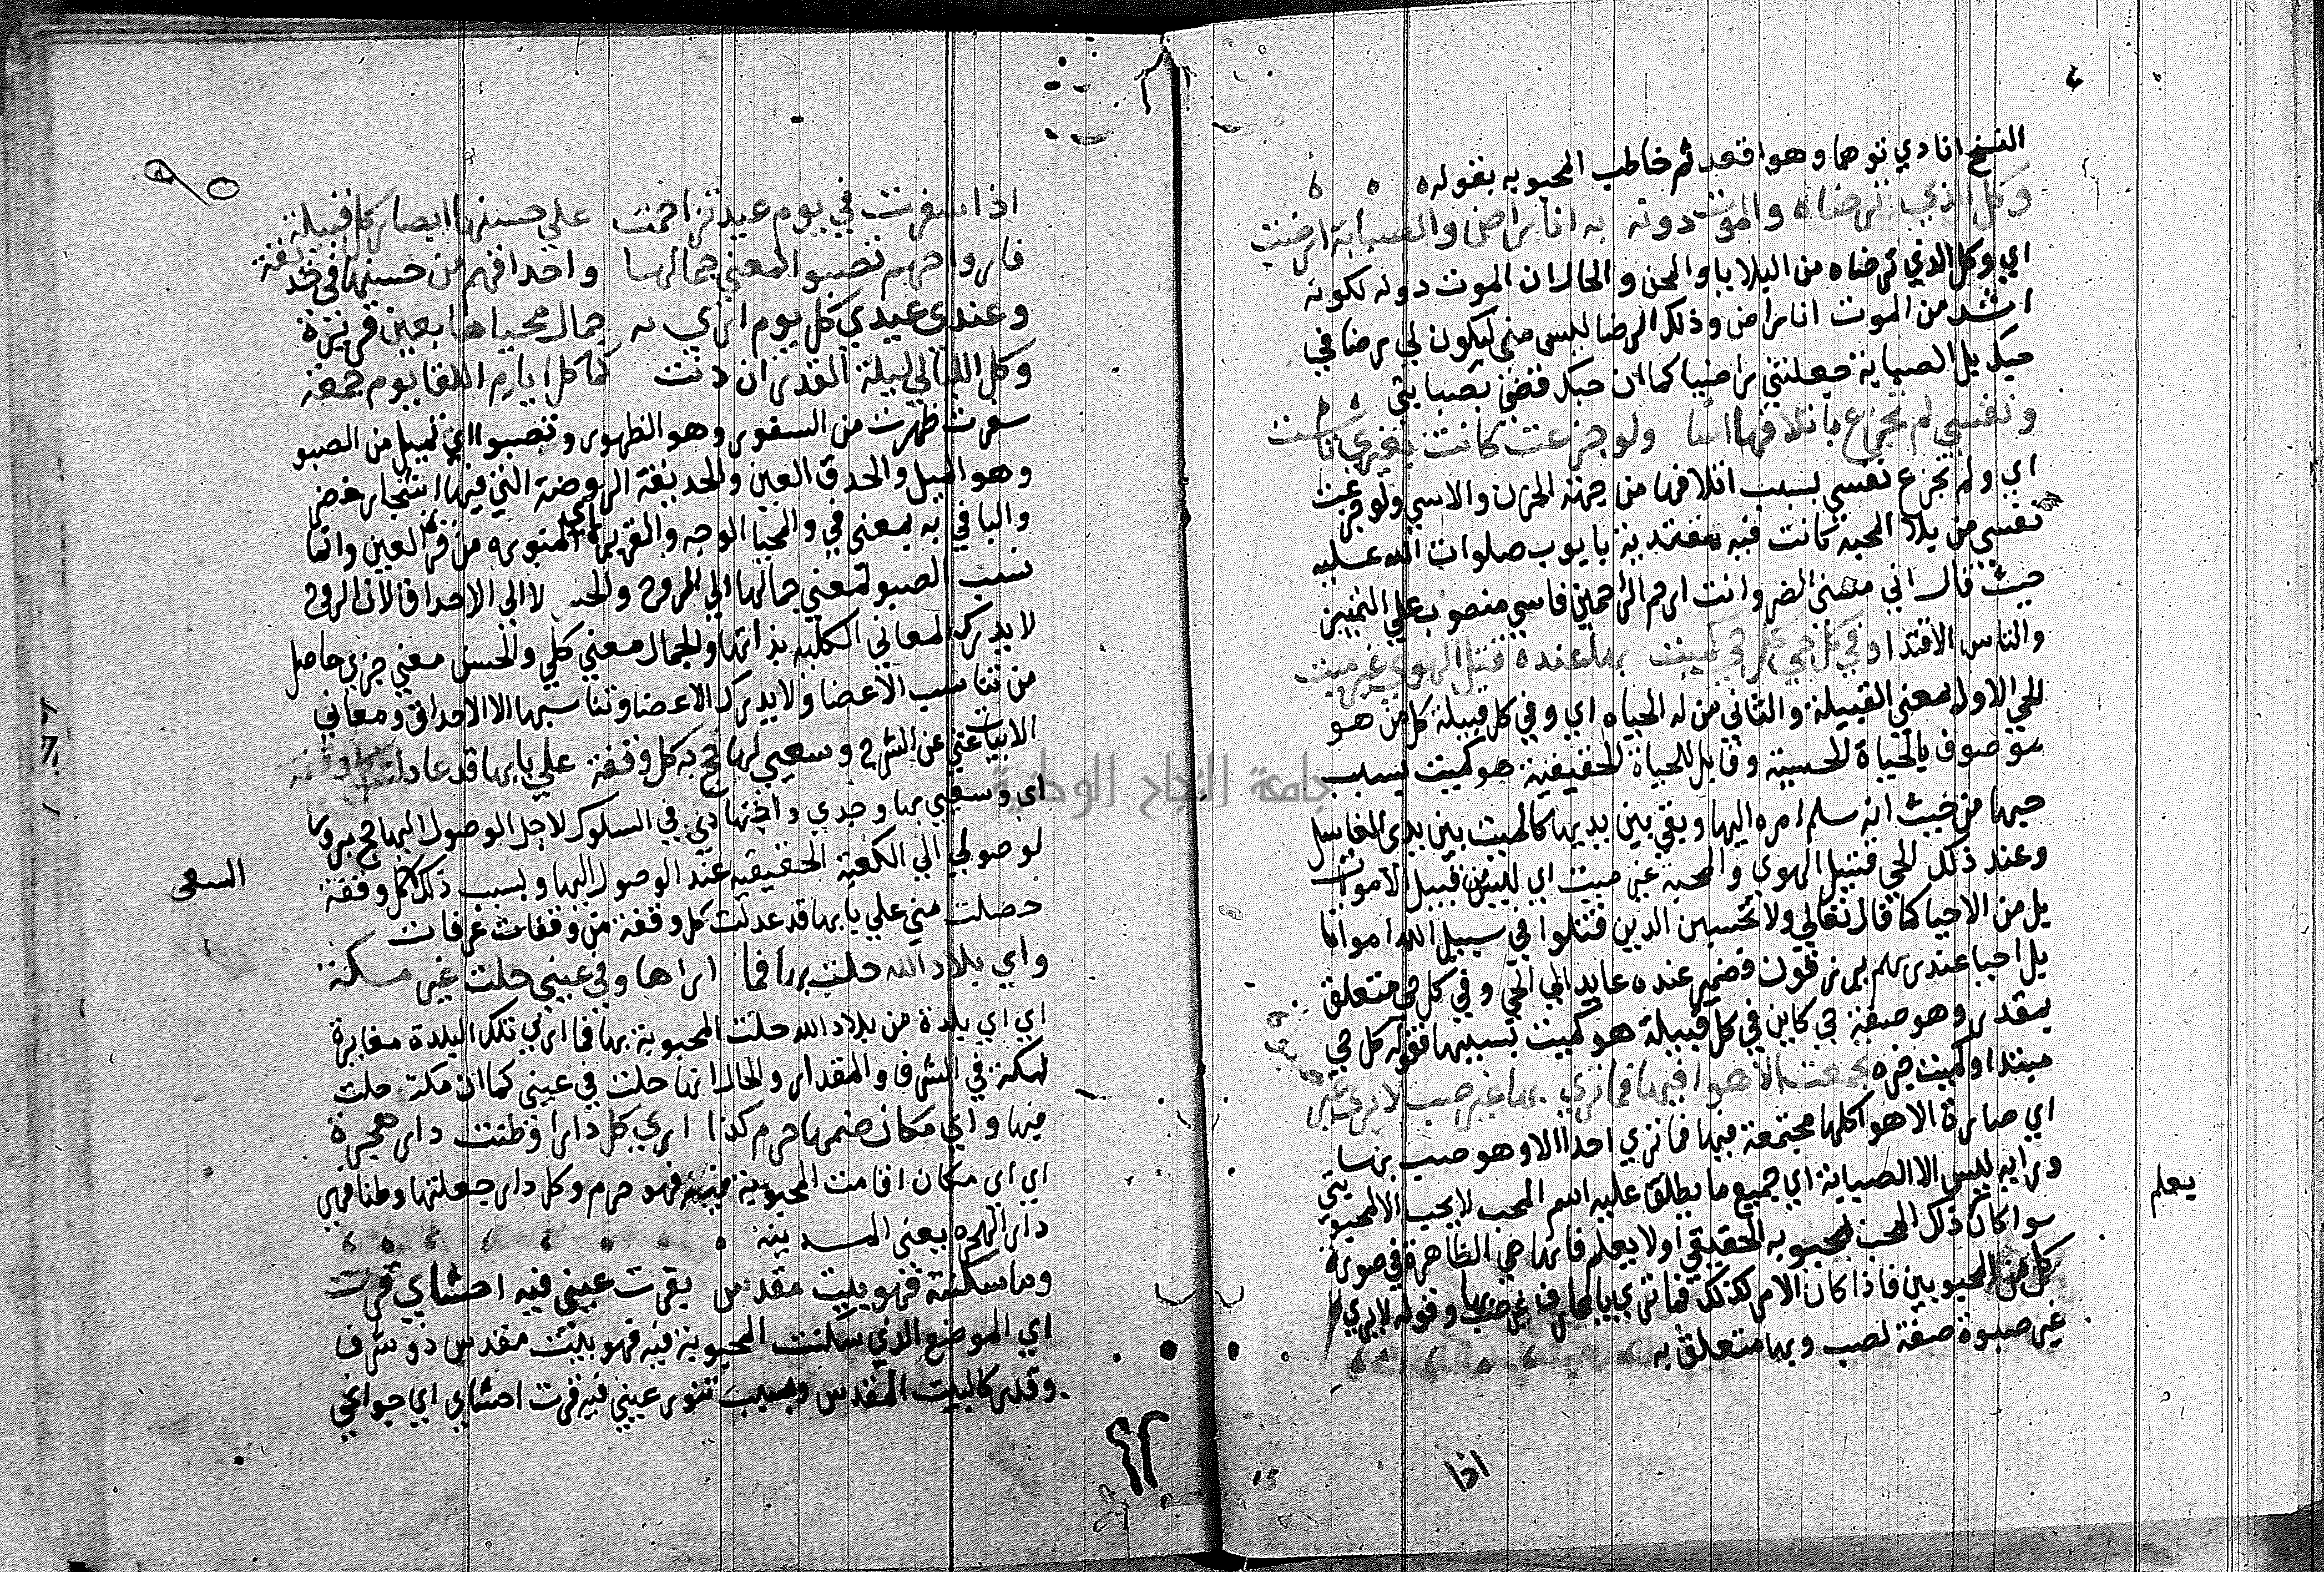 الفسخ انا دي توهما وهوا قعد ثم خاطب المحبوبه بقوله
وكل الذي ترضاه والموت دونه به انا راض والصبابة ارضت
اي وكل الذي ترضاه من البلايا والمحن والحال ان الموت دونه لكونه
اشد من الموت انا راض وذلك الرضا ليس مني ليكون لي رضا في
حبك بل الصبابة جعلتني راضيا كما ان حبك قضى بصبابتي
ونفسي لم تجزع باتلافها اسا ولو جزعت كانت بغيري تاست
اي ولم تجزع نفسي بسبب اتلافها من جهة الحزن والاسي ولو جزعت
نفسي من بلا المحبة كانت فيه مقتدية بايوب صلوات الله عليه
حيث قال اني مسني الضر وانت ارحم الراحمين فاسي منصوب علي التمييز
والتاس الاقتدا وفي كل حي كل حي كميت بها عنده قتل الهوي غير ميت
الحي الاول بمعني القبيلة والثاني من له الحياه اي وفي كل قبيلة كل من هو
موصوف بالحياة الحسية وقابل للحياة الحقيقية هو كميت بسبب
حبها من حيث انه سلم امره اليها وبقي بين يديها كالميت بين يدي الغاسل
وعند ذلك الحي قتيل الهوي والمحبه غير ميت اي ليس من قبيل الاموات
بل من الاحيا كما قال تعالي ولا تحسبن الذين قتلوا في سبيل الله امواتا
بل احيا عند ربهم يرزقون فضمير عنده عايد الي الحي وفي كل حي متعلق
بمقدر وهو صفة حي كاين في كل قبيلة هو كميت بسببها فقوله كل حي
مبتدا وكميت خبره تجمعت الاهوا فيها فما تري بها غير صب لا يري غير
اي صارة الاهوا كلها مجتمعة فيها فما تري احدا الا وهو صب بها
ورايه ليس الا الصبابة اي جميع ما يطلق عليه اسم المحب لا يحب الا محبوبتي
سوا كان ذلك المحب لمحبوبه الحقيقي او لا يعلم فانها هي الظاهرة في صورة
يعلم
كل من المحبوبين فاذا كان الامر كذلك فما تري بها غير صب وقوله لا يري
غير صبوة صفة لصب وبها متعلق به
اذا
اذا اسفرت في يوم عيد تزاحمت علي حسنها ابصار كل قبيلة
فارواحهم تصبوا لمعني جمالها واحداقهم من حسنها في حديقة
وعندي عيدي كل يوم اري به جمال محياها بعين قريرة
وكل الليالي ليلة القدر ان دنت كما كل ايام اللقا يوم جمعة
سفرت ظهرت من السفور وهو الظهور وتصبوا اي تميل من الصبو
وهو الميل والحدق العين والحديقة الروضة التي فيها اشجار غض
والبا في به بمعني في والمحيا الوجه والقريرة اي المنوره من قر العين وانما
نسب الصبو لمعني جمالها الي الروح والحسن لا الي الاحداق لان الروح
لا يدرك المعاني الكلية بذاتها والجمال معني كلي والحسن معني جزي حاصل
من تناسب الاعضا ولا يدرك الاعضا وتناسبها الا الاحداق ومعاني
الابيات غني عن الشرح وسعيي لها حج به كل وقفة علي بابها قد عادلت كل وقفة
اي وسعيي بها وجدي واجتهادي في السلوك لاجل الوصول اليها حج مبرور
لوصولي الي الكعبة الحقيقيه عند الوصول اليها وبسبب ذلك كل وقفة
السعي
حصلت مني علي بابها قد عدلت كل وقفة من وقفات عرفات
واي بلاد الله حلت بها فما اراها وفي عيني حلت غير مكة
اي اي بلدة من بلاد الله حلت المحبوبة بها فما اري تلك البلدة مغايرة
لمكة في الشرف والمقدار والحال انها حلت في عيني كما ان مكة حلت
فيها واي مكان ضمها حرم كذا اري كل دار اوطنت دار هجرة
اي اي مكان اقامت المحبوبة فيه فهو حرم وكل دار جعلتها وطنا فهي
دار الهجره يعني المدينة
وما سكنته فهو بيت مقدس بقرت عيني فيه احشاي قرت
اي الموضع الذي سكنت المحبوبة فيه فهو بيت مقدس ذو شرف
وقدر كالبيت المقدس وبسبب تنور عيني فيه قرت احشاي اي جوانحي
جامعة النجاح الوطنية